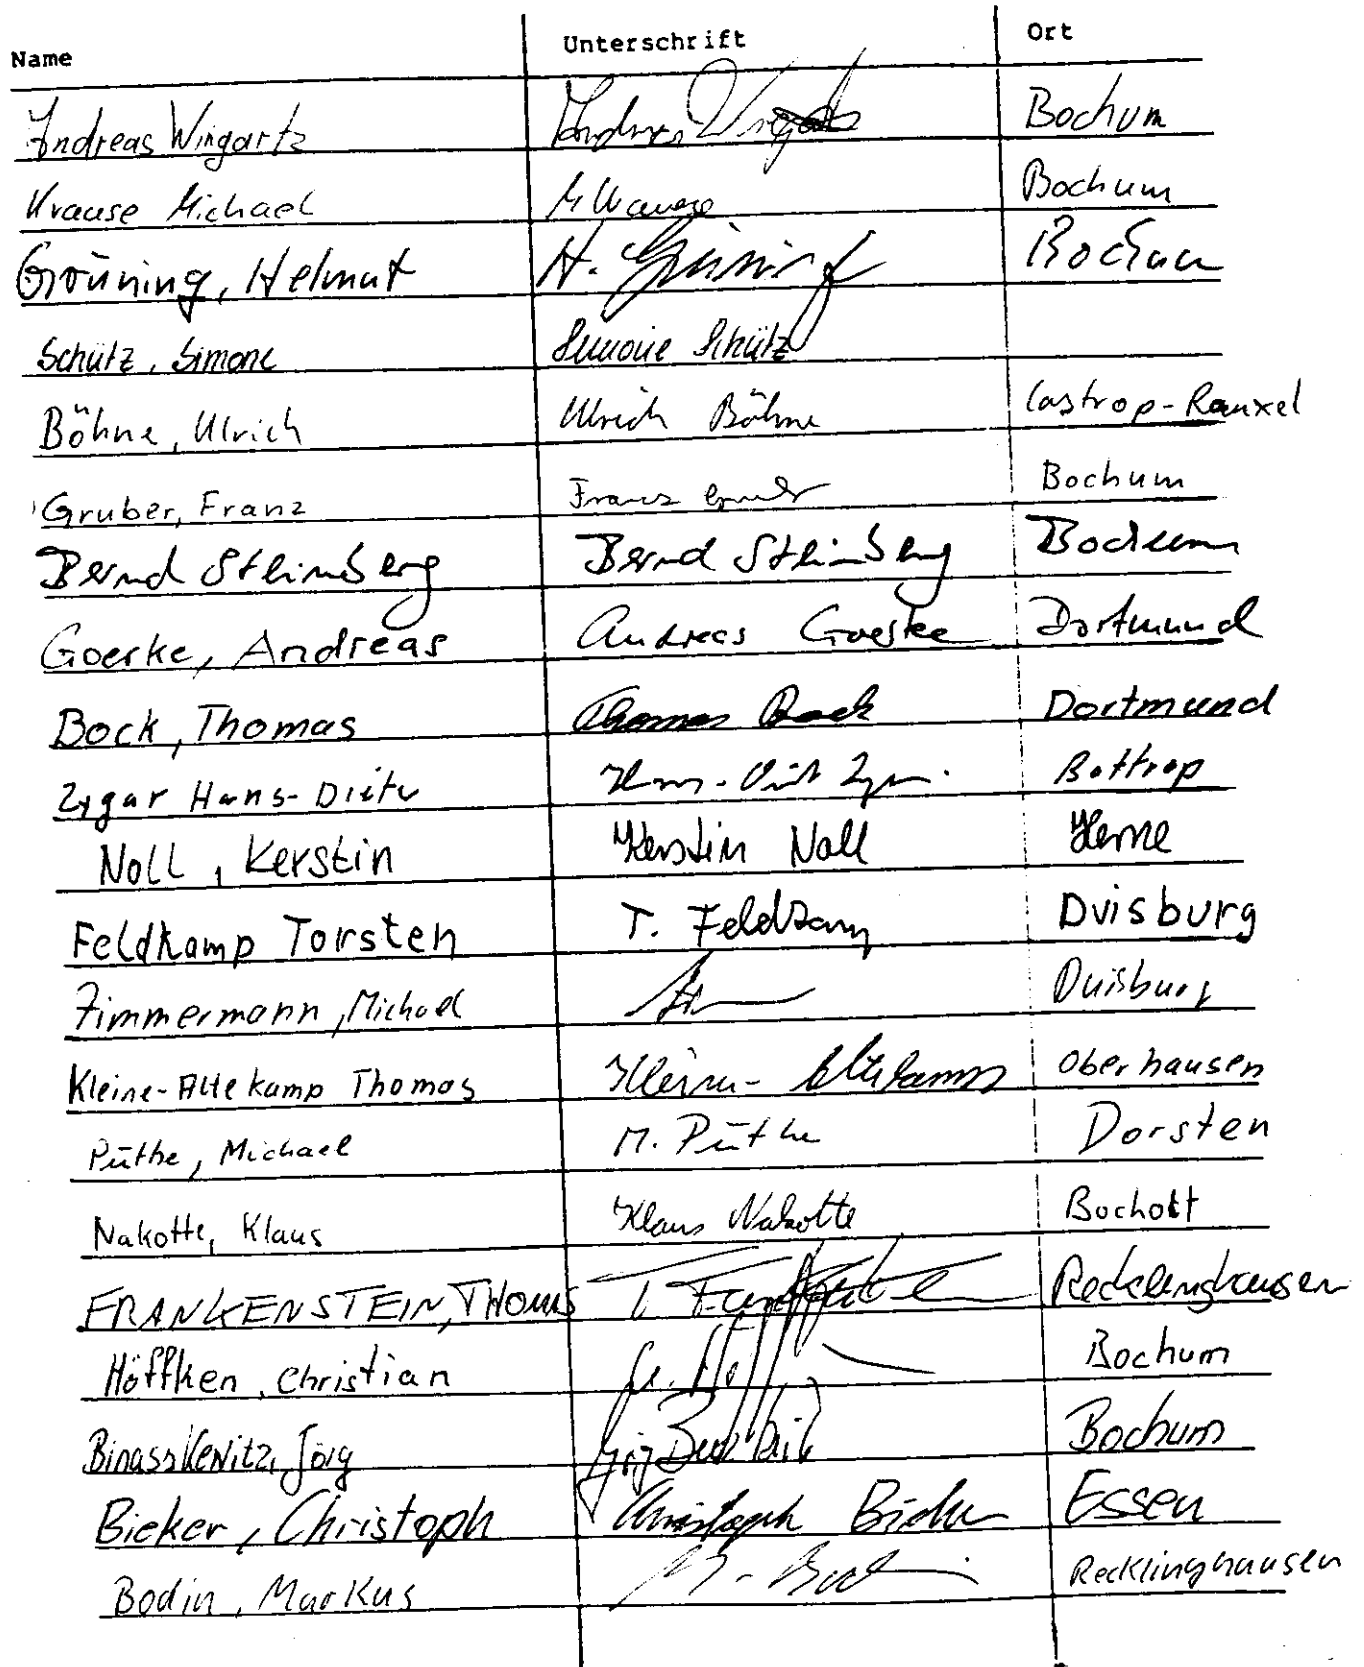 Name Unterschrift Ort
Andreas Wingartz Andreas Bochum
Krause Michael M Krause Bochum
Gröning, Helmut H. Gröning Bochum
Schütz, Simone Simone Schütz
Böhne, Ulrich Ulrich Böhne Castrop-Rauxel
Gruber, Franz Franz Gruber Bochum
Bernd Steinberg Bernd Steinberg Bochum
Goerke, Andreas Andreas Goerke Dortmund
Bock, Thomas Thomas Bock Dortmund
Zygar Hans-Dieter Bottrop
Noll, Kerstin Kerstin Noll Herne
Feldkamp Torsten T. Feldkamp Duisburg
Zimmermann, Michael Duisburg
Kleine-Altekamp Thomas Kleine-Altekamp Oberhausen
Püthe, Michael M. Püthe Dorsten
Nakotte, Klaus Klaus Nakotte Bocholt
FRANKENSTEIN, THOMAS T. Recklinghausen
Höffken, Christian Bochum
Binasskewitz, Jörg Jörg Bochum
Bieker, Christoph Christoph Bieker Essen
Bodin, Markus M. Recklinghausen